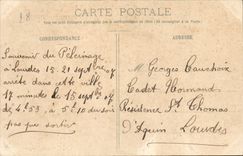 18
CARTE POSTALE
CORRESPONDANCE
ADRESSE
Souvenir du Pèlerinage
à Lourdes 15 21 sept 07
arrête dans cette ville
17 minutes le 15 sept 07
de 4h53 à 5h10 du soir
pas que sortir
Mr Georges
Cadet Normand
Résidence St Thomas
d'Aquin Lourdes